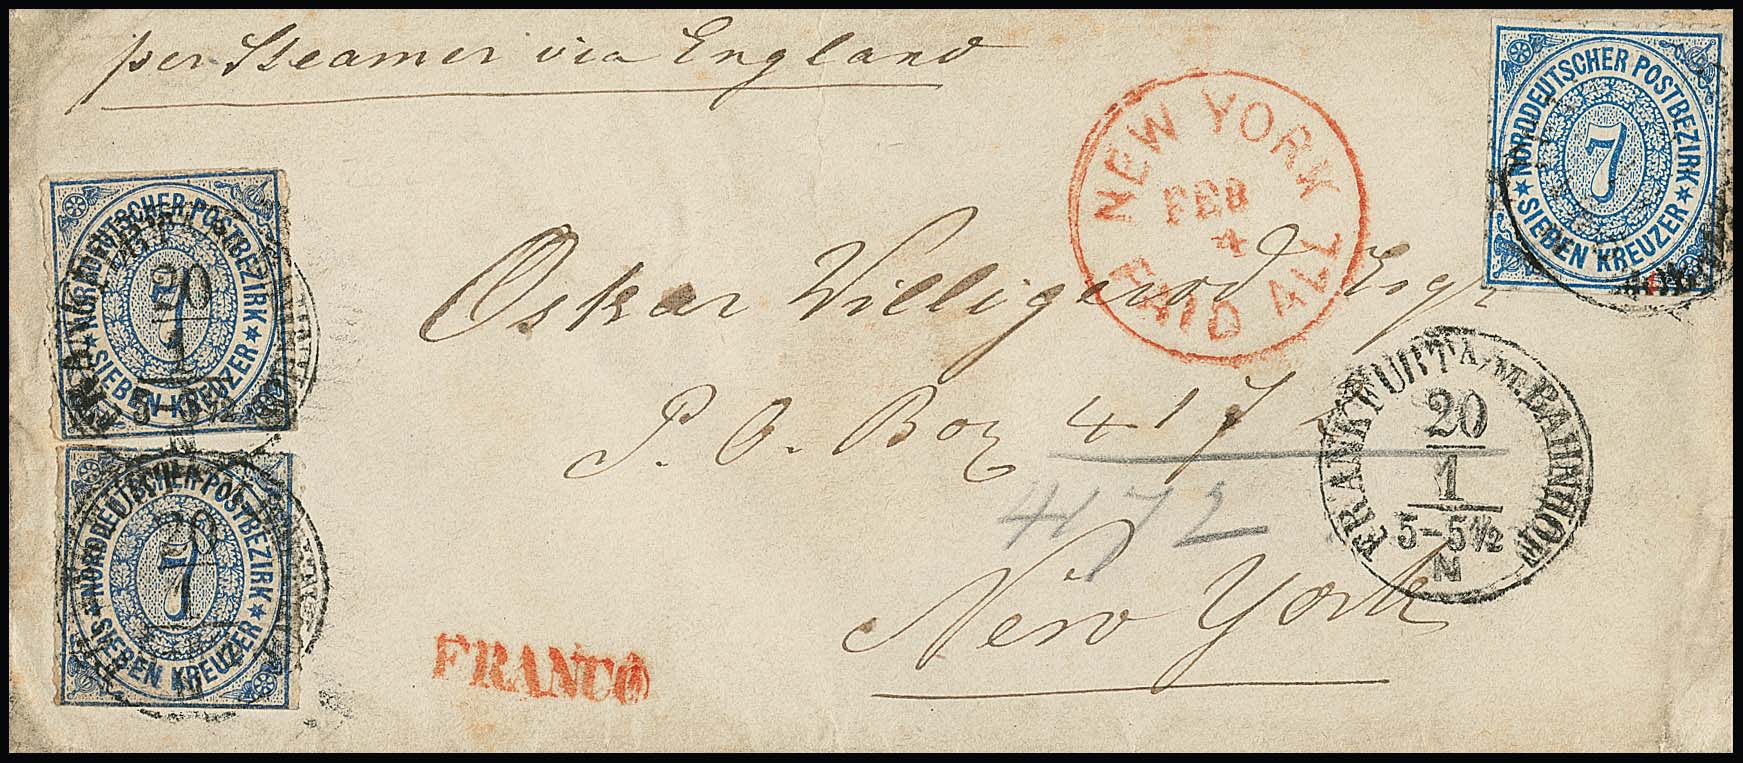 per Steamer via England
NORDDEUTSCHER POSTBEZIRK
7
★ SIEBEN KREUZER ★
NEW YORK
FEB
4
PAID ALL
NORDDEUTSCHER POSTBEZIRK
7
★ SIEBEN KREUZER ★
20
1
5-5½
N
Oskar Willigerod Esqr
P. O. Box 417
4172
FRANKFURT A. M. BAHNHOF
20
1
5-5½
N
NORDDEUTSCHER POSTBEZIRK
7
★ SIEBEN KREUZER ★
20
1
New York
FRANCO